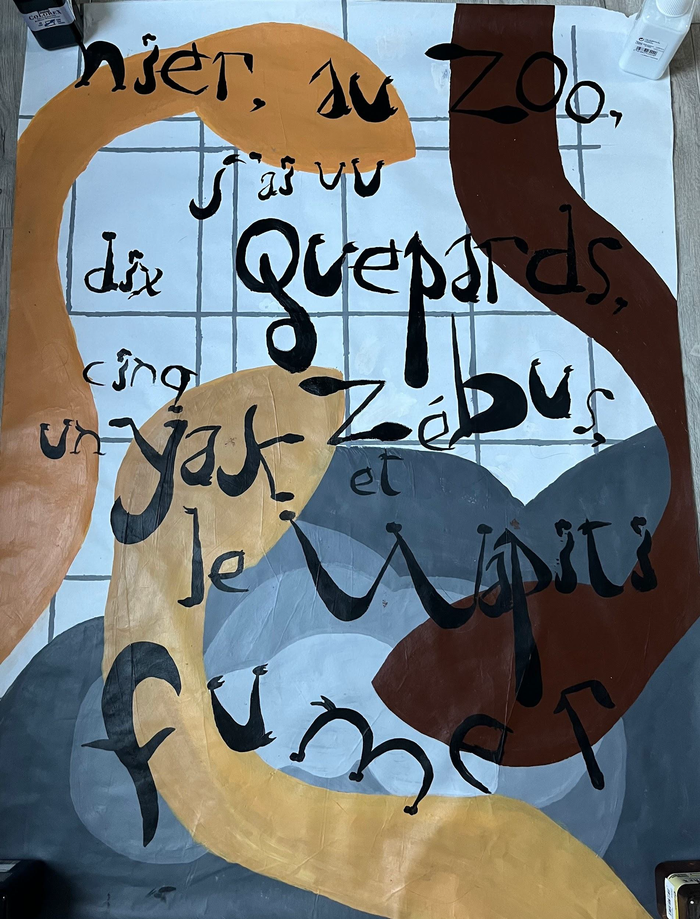 hier, au zoo,
j'ai vu
dix guepards,
cinq zébus
un yak
et
le Wapiti
fumer